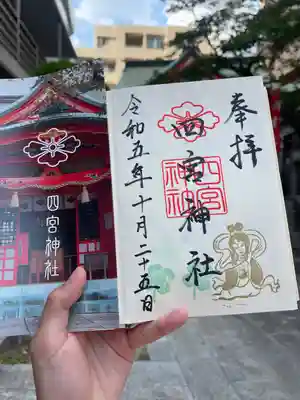 四宮神社
奉拝
四宮神社
四宮
神社
令和五年十月二十五日